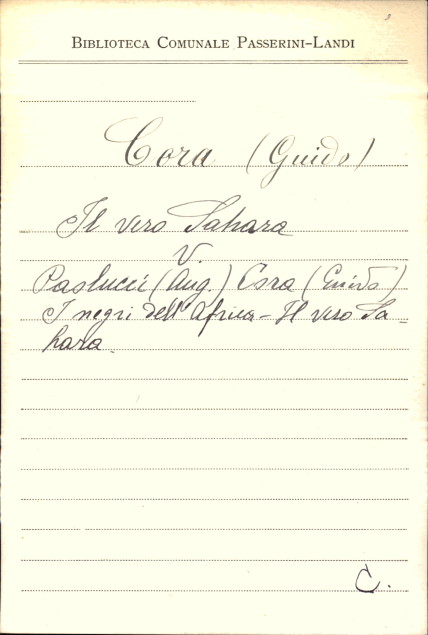 BIBLIOTECA COMUNALE PASSERINI-LANDI
Cora (Guido)
Il vero Sahara
V.
Paolucci (Aug.) Cora (Guido)
I negri dell'Africa - Il vero Sa-
hara.
C.